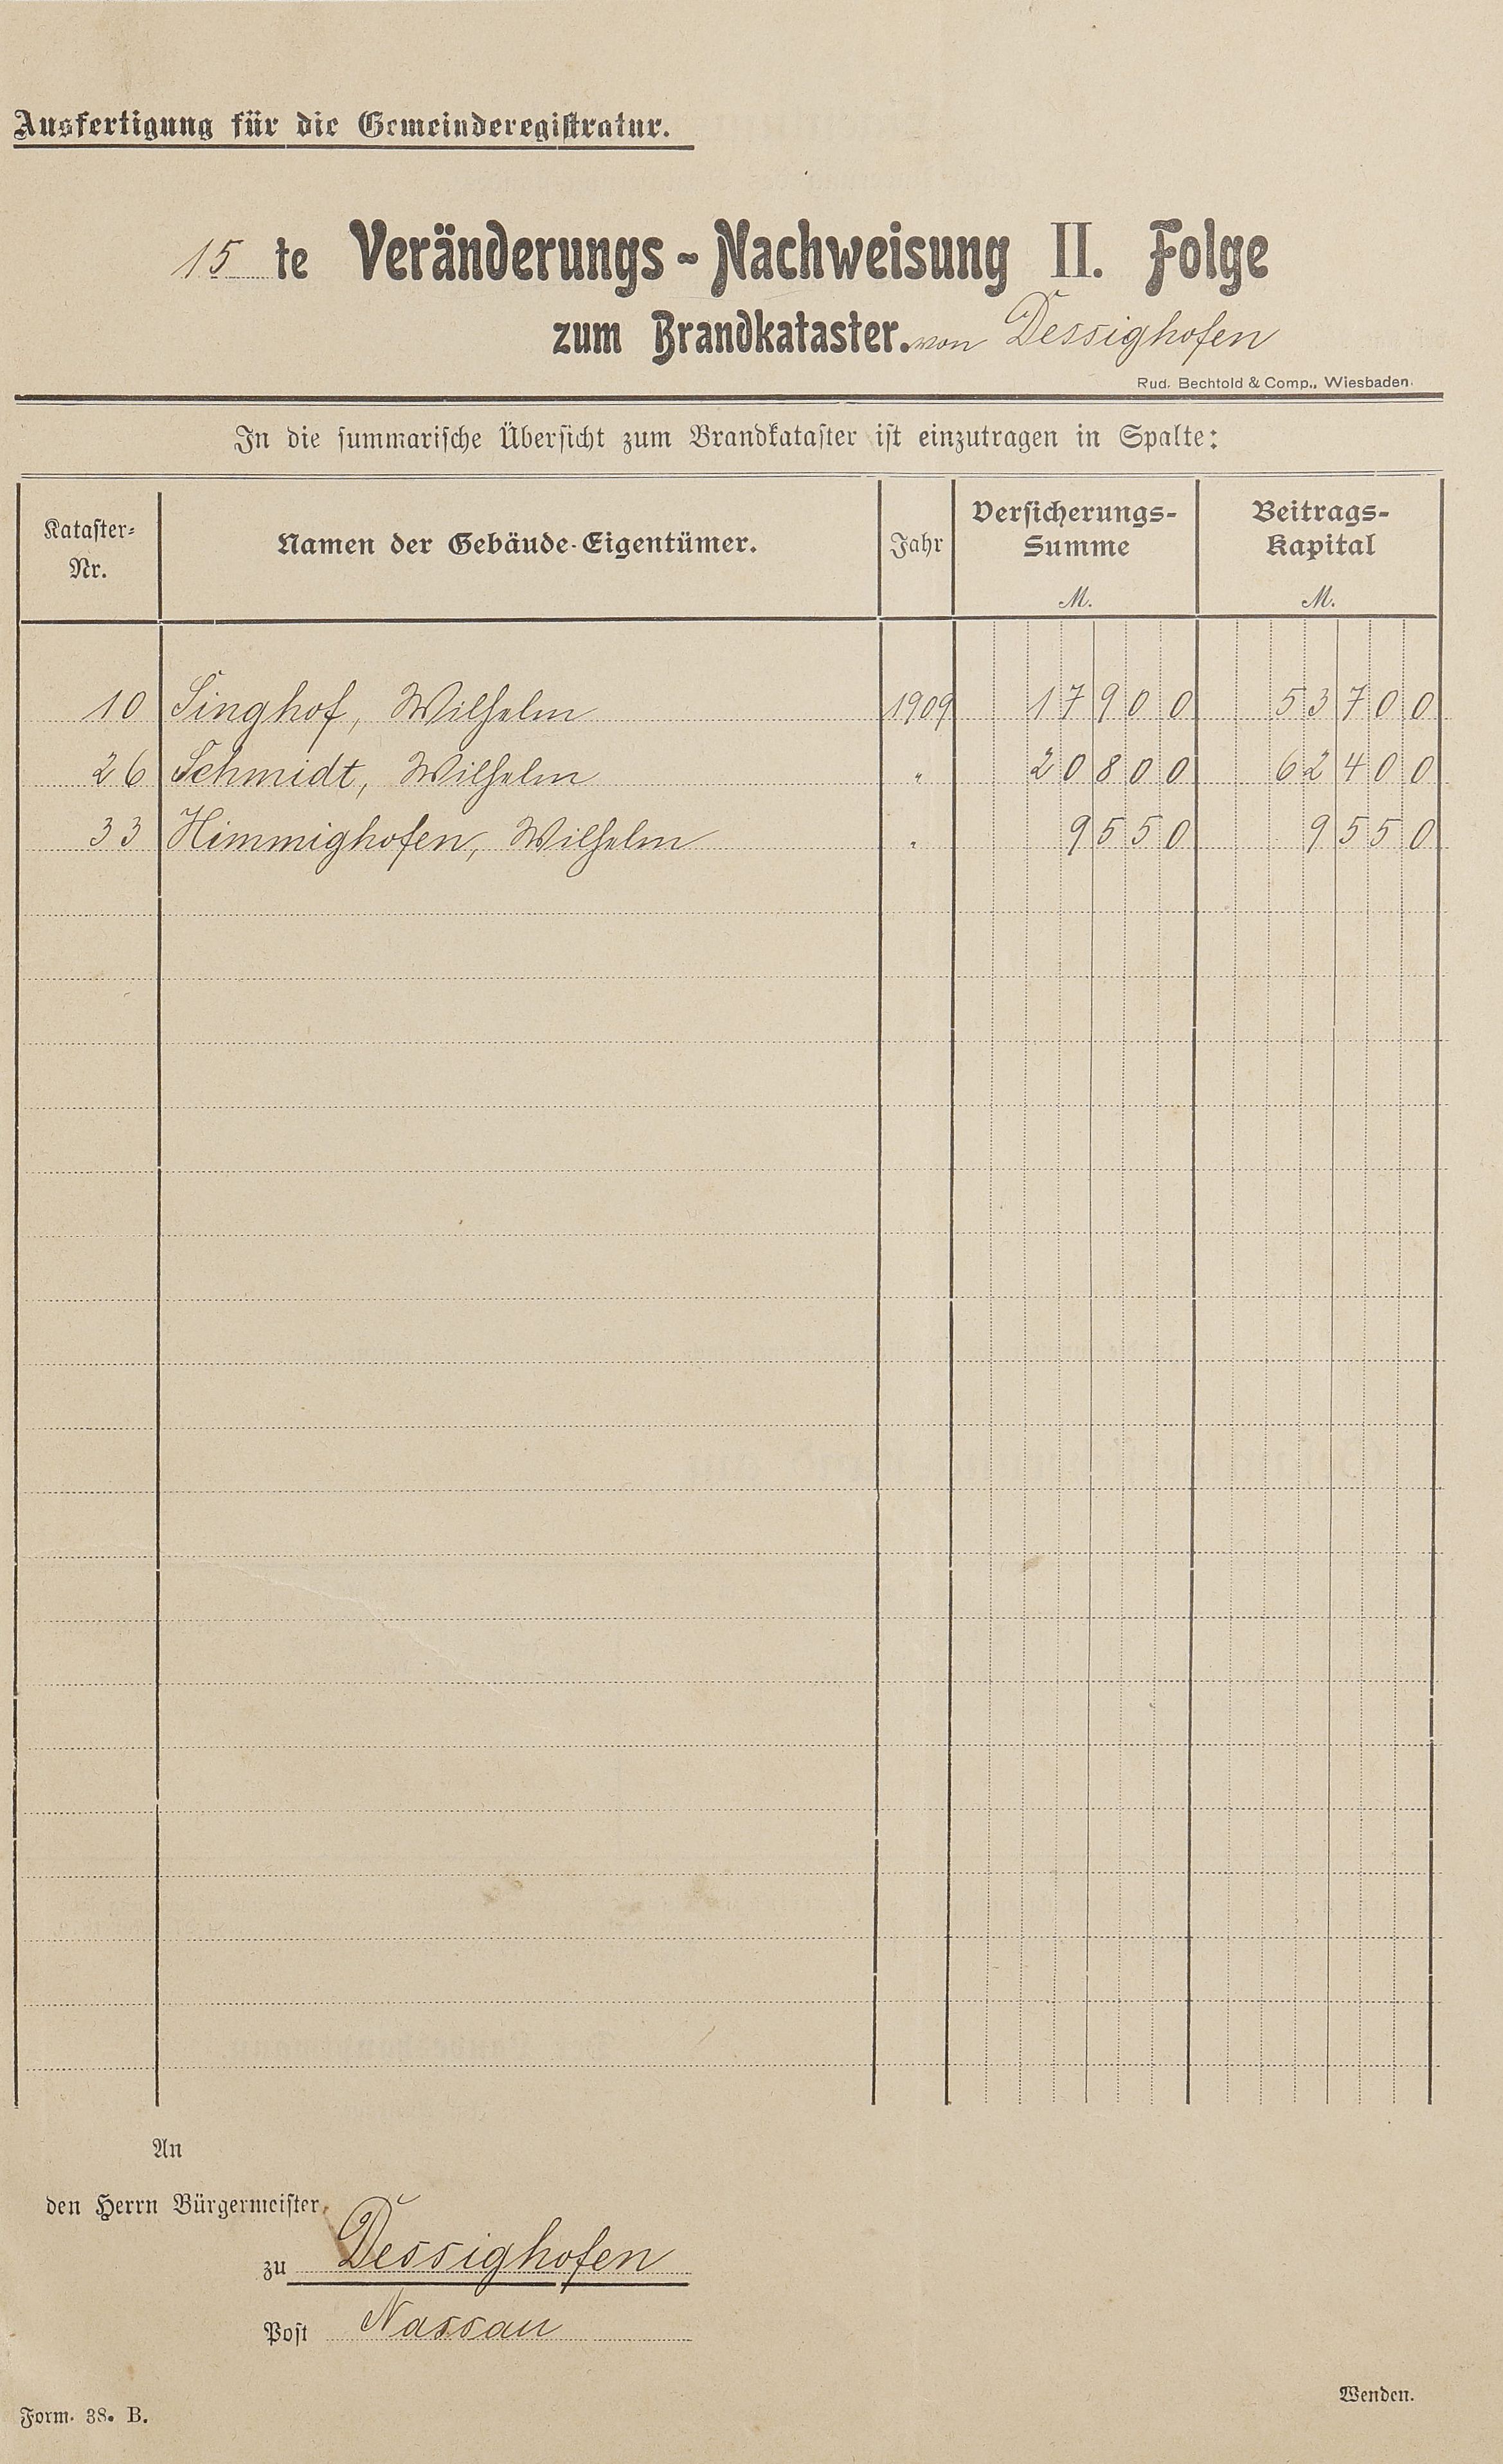 Ausfertigung für die Gemeinderegistratur.
15 te Veränderungs-Nachweisung II. Folge
zum Brandkataster. von Dessighofen
Rud. Bechtold & Comp., Wiesbaden.
In die summarische Übersicht zum Brandkataster ist einzutragen in Spalte:
Kataster-Nr. Namen der Gebäude-Eigentümer. Jahr Versicherungs-Summe M. Beitrags-Kapital M.
10 Singhof, Wilhelm 1909 17900 53700
26 Schmidt, Wilhelm " 20800 62400
33 Himmighofen, Wilhelm " 9550 9550
An
den Herrn Bürgermeister
zu Dessighofen
Post Nassau
Wenden.
Form. 38. B.